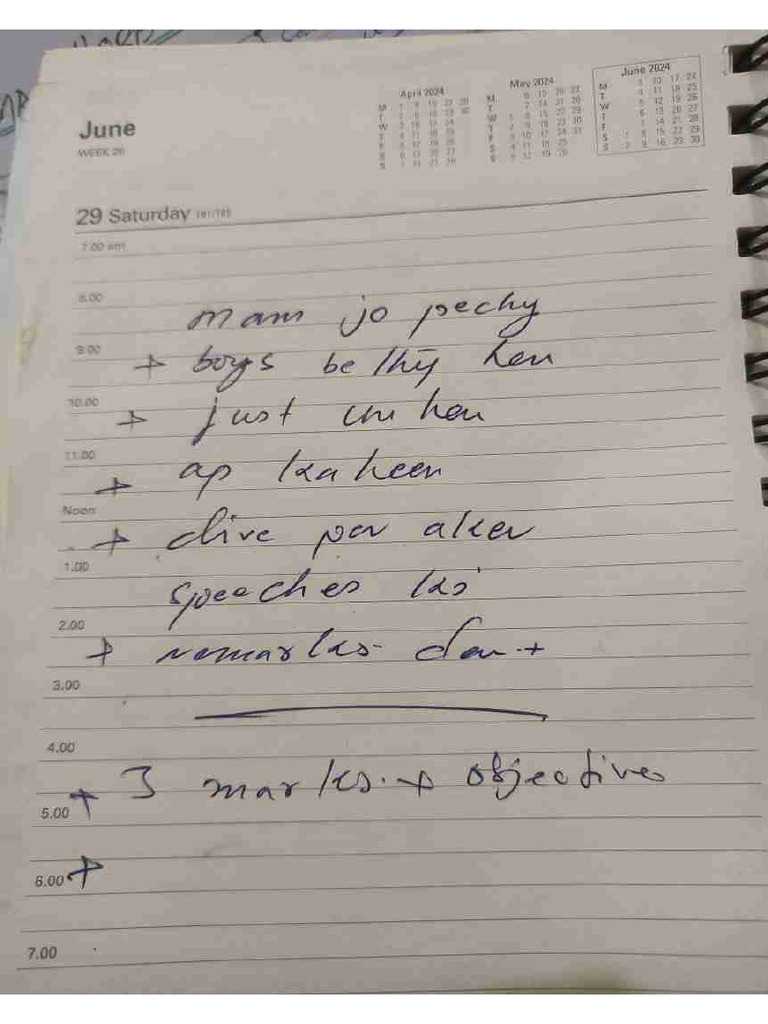 April 2024
May 2024
June 2024
June
WEEK 26
29 Saturday
7.00 am
8.00
mam jo pechy
9.00
+ boys bethy hen
10.00
+ just un hen
11.00
+ ap kaheen
Noon
+ dive par aker
1.00
speeches ks
2.00
+ remarks den +
3.00
4.00
+ 3 marks. + objectives
5.00
6.00 +
7.00